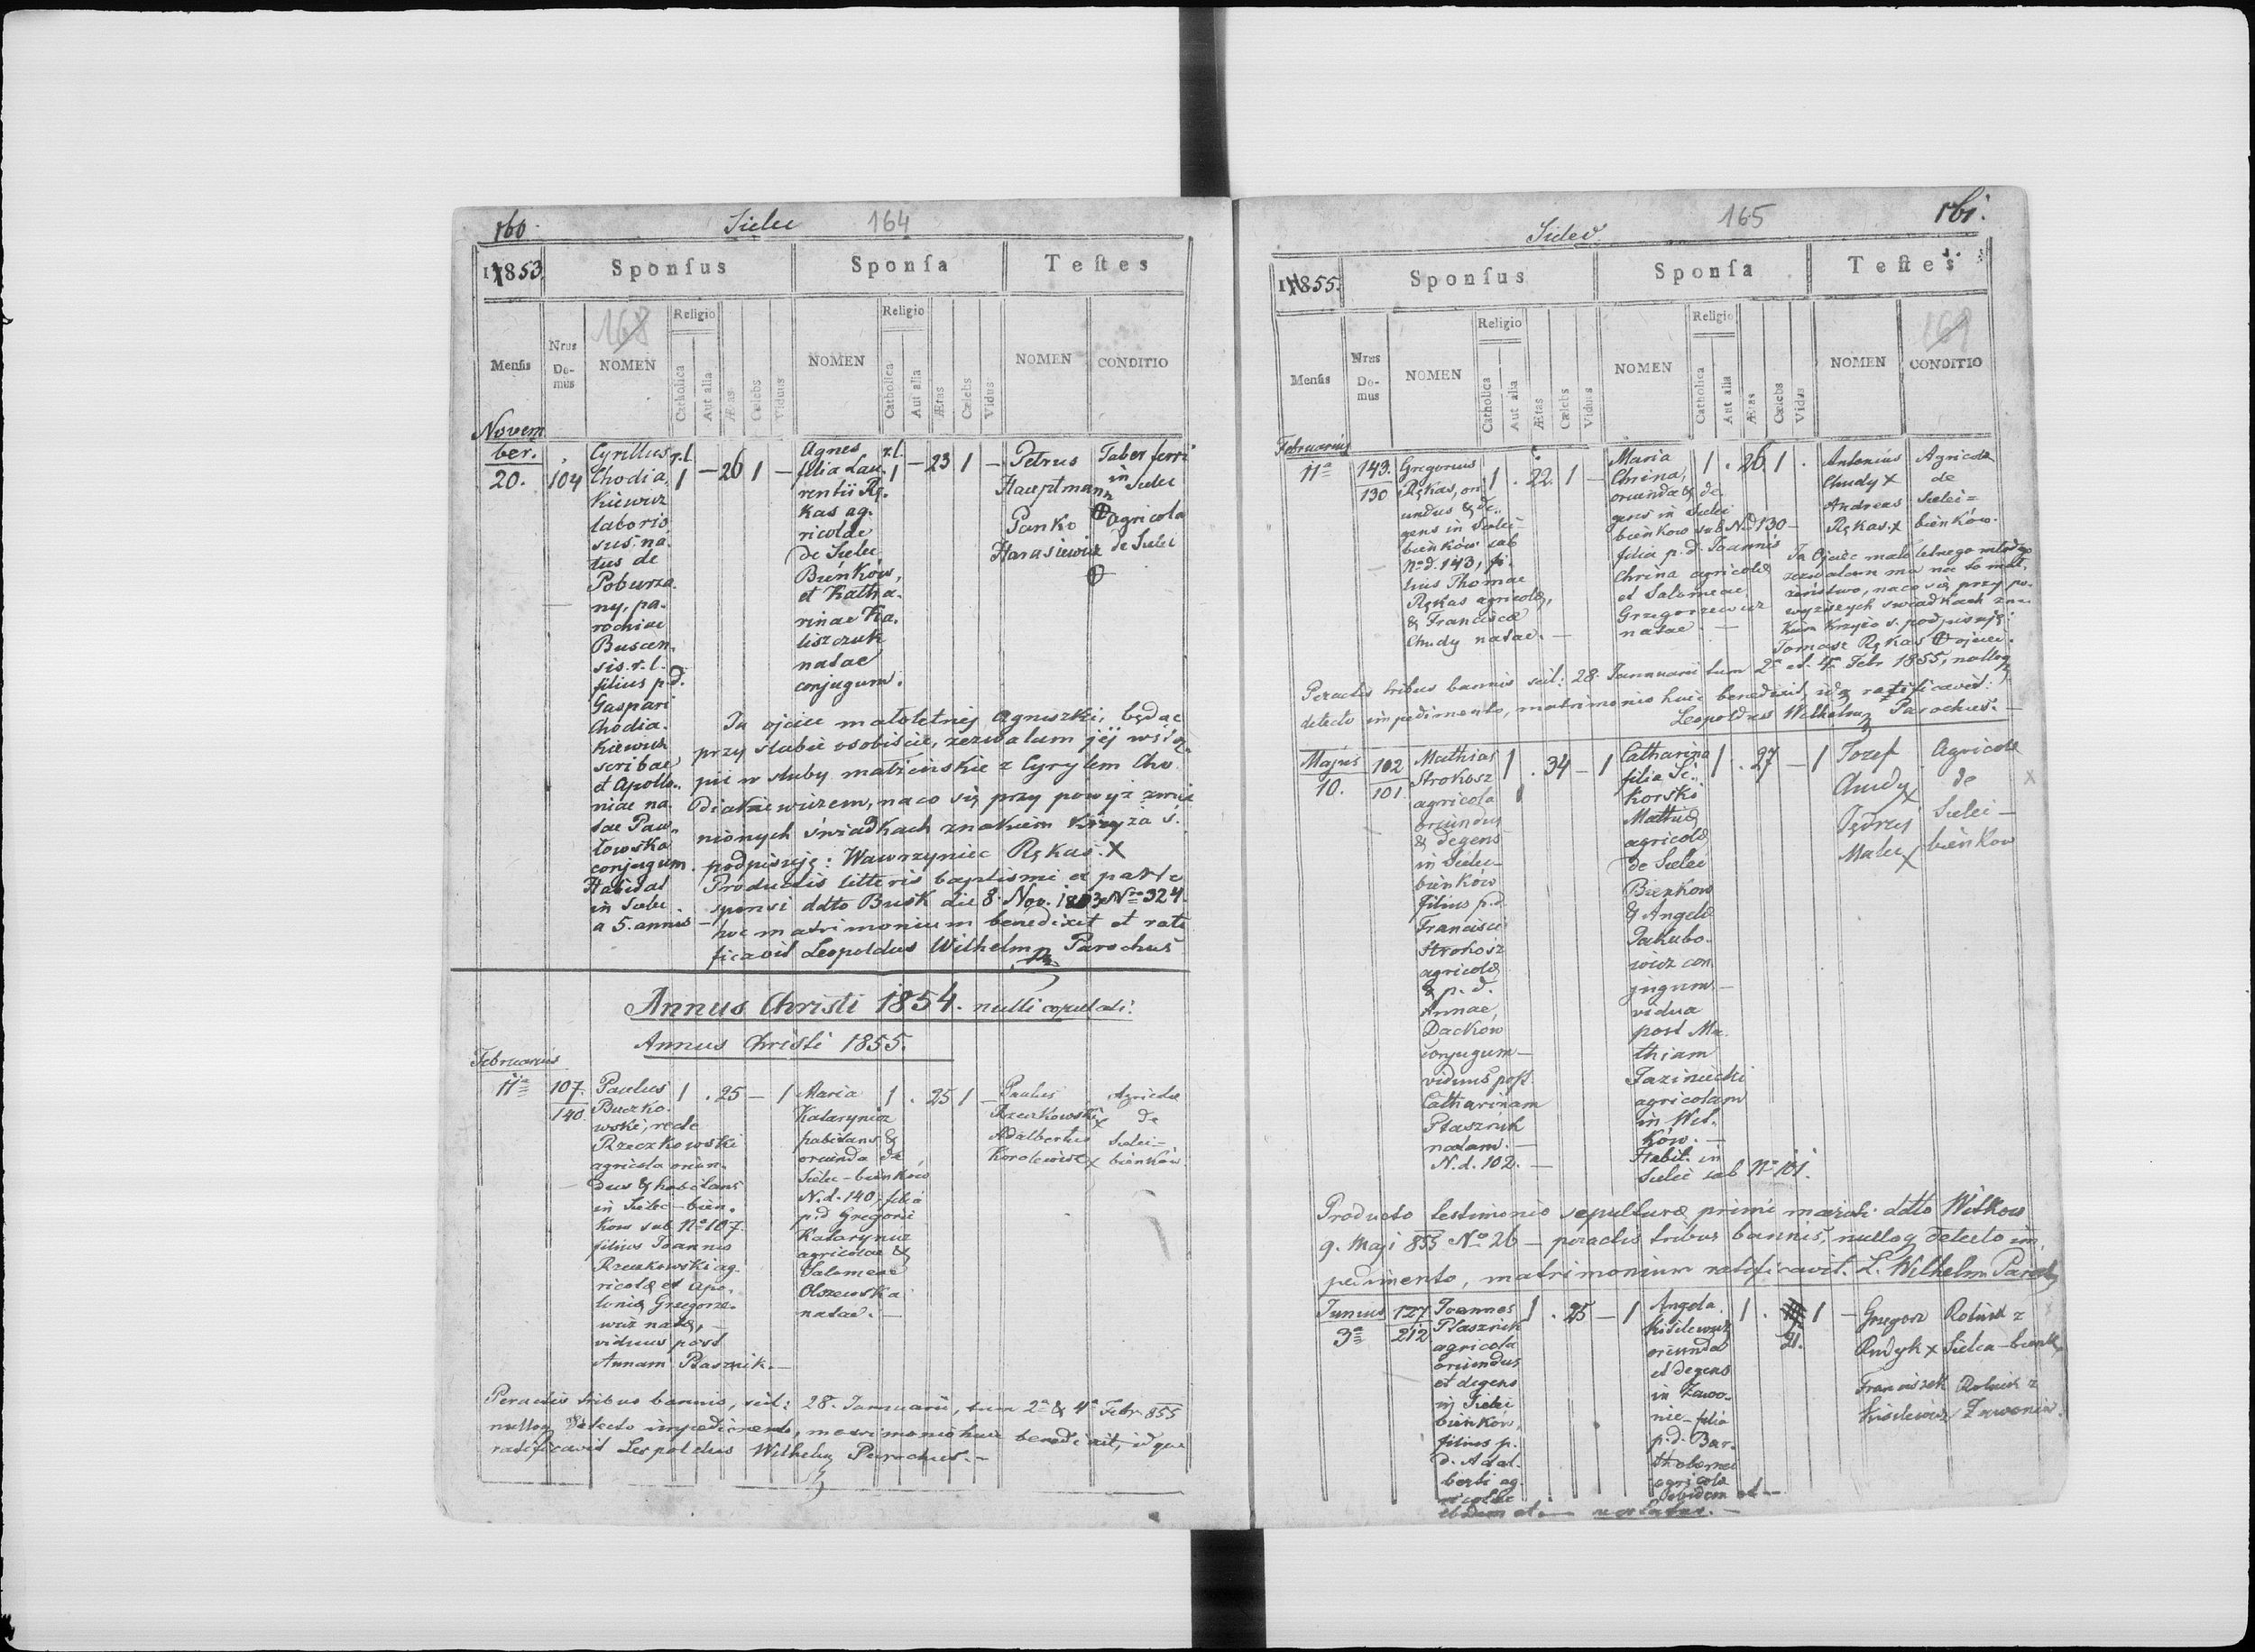 160. Sielec 164
1853. Sponsus Sponsa Testes
Mensis Nrus Domus 168 NOMEN Religio Catholica Aut alia Ætas Cælebs Viduus NOMEN Religio Catholica Aut alia Ætas Cælebs Vidus NOMEN CONDITIO
Novem
ber.
20.
104
Cyrillus
Chodia
kiewicz
laborio
sus. na
tus de
Poburza
ny, pa-
rochiae
Buscen
sis. r. l.
filius p.d.
Gaspari
Chodia-
kiewicz
scribae
et Apollo-
niae na
tae Paw
łowska
conjugum.
Habitat
in Sielec
a 5. annis
r.l.
1 – 26 1 –
Agnes
filia Lau
rentii Rę-
kas ag-
ricolae
de Sielec
Bieńków,
et Katha-
rinae Ka-
liszczuk
natae
conjugum.
r.l.
1 – 23 1 –
Petrus
Hauptmann
Panko
Harasiewicz
Faber ferri
in Sielec
agricola
de Sielec
Ja ojciec małoletniej Agnieszki, będąc
przy ślubie osobiście, zezwalam jéj wstą
pić w śluby małżeńskie z Cyrylem Cho
diakiewiczem, na co się przy powyż wmie
nionych świadkach znakiem krzyża ś.
podpisuję: Wawrzyniec Rękas. X
Productis litteris baptismi ex parte
sponsi ddto Busk die 8 Nov. 1853 Nro 324
hoc matrimonium benedixit et rati
ficavit Leopoldus Wilhelm Parochus
Annus Christi 1854. nulli copulati.
Annus Christi 1855.
Februarius
11a
107.
140
Paulus
Buczko-
wski, recte
Rzeczkowski
agricola oriun-
dus & habitans
in Sielec-bień-
kow sub No 107.
filius Joannis
Rzeczkowski ag-
ricolæ et Apo-
loniæ Grzegorze-
wicz natæ, –
viduus post
Annam Ptasznik. –
1 . 25 – 1
Maria
Katarynicz
habitans &
oriunda de
Sielec-bienków
N.d. 140, filia
p.d Gregorii
Katarynicz
agricolae &
Salomeae
Olszewska
natae. –
1 . 25 1 –
Paulus
Rzeczkowski x
Adalbertus
Korolewicz x
Agricolæ
de
Sielec=
bienków.
Peractis tribus bannis, scil: 28. Januarii, tum 2a & 4a Febr. 855
nulloq detecto impedimento, matrimonio huic benedixit, idque
ratificavit Leopoldus Wilhelm Parochus. –
Sielec 165 161.
1855. Sponsus Sponsa Testes
Mensis Nrus Domus NOMEN Religio Catholica Aut alia Ætas Cælebs Viduus NOMEN Religio Catholica Aut alia Ætas Cælebs Vidus NOMEN 169 CONDITIO
Februarius
11a
143.
130
Gregorius
Rękas, ori
undus & de-
gens in Sielec
bieńków sub
No d. 143, fi-
lius Thomae
Rękas agricolæ,
& Franciscæ
Chudy natae. –
1 . 22. 1 –
Maria
Chrina,
oriunda & de-
gens in Sielec
bienkow sub Nd 130 –
filia p.d. Joannis
Chrina agricolæ
et Salomeae
Grzegorzewicz
natae. –
1 . 26. 1 .
Antonius
Chudy x
Andreas
Rękas. x
Agricolæ
de
Sielec=
bienków.
Ja Ojciec małoletnego młodego
zezwalam mu na to mał-
żeństwo, na co się przy po-
wyższych swiadkach zna-
kiem krzyża s. podpisuję:
Tomasz Rękas ojciec.
Peractis tribus bannis scil: 28. Januarii tum 2a et 4a Febr 1855, nulloq
detecto impedimento, matrimonio huic benedixit, idq ratificavit.
Leopoldus Wilhelm Parochus. –
Majus
10.
102
101
Mathias
Strokosz
agricola
oriundus
& degens
in Sielec
bienków
filius p.d.
Francisci
Strokosz
agricolæ
& p. d.
Annae
Dacków
conjugum –
viduus post
Catharinam
Ptasznik
natam. –
N. d. 102. –
1 . 34 – 1
Catharina
filia Si-
korski
Mathiæ
agricolæ
de Sielec
Bienkow
& Angelæ
Jakubo-
wicz con
jugum –
vidua
post Ma-
thiam
Jazinicki
agricolam
in Wit-
ków. –
Habit. in
Sielec sub No 101.
1 . 27 – 1
Jozef
Chudy x
Jędrzej
Malec x
Agricolæ
de
Sielec –
bienkow
Producto testimonio sepulturæ primi mariti ddto Witkow
9. Maji 855 No 26 – peractis tribus bannis, nulloq detecto im
pedimento, matrimonium ratificavit. L. Wilhelm Paroch
Junius
3a
127
212
Joannes
Ptasznik
agricola
oriundus
et degens
in Sielec
bienków,
filius p.
d. Adal-
berti ag
ricolae
ibidem et –
1 . 25 – 1
Angela
Kisilewicz
oriunda
et degens
in Zawo-
nie – filia
p.d. Bar-
tholomei
agricolæ
ibidem et –
1 . 21. 1 –
Grzegorz
Rudyk x
Franciszek
Kisilewicz
Rolnik z
Sielca-bienk
Rolnik z
Zawonia.